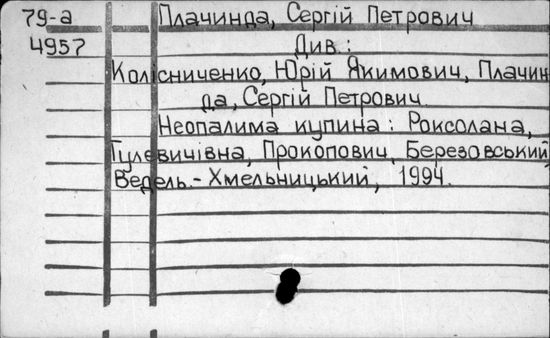 79-а Плачинда, Сергій Петрович
4957 Див.:
Колісниченко, Юрій Якимович, Плачин
да, Сергій Петрович
Неопалима купина: Роксолана,
Гулевичівна, Прокопович, Березовський,
Ведель.-Хмельницький, 1994.